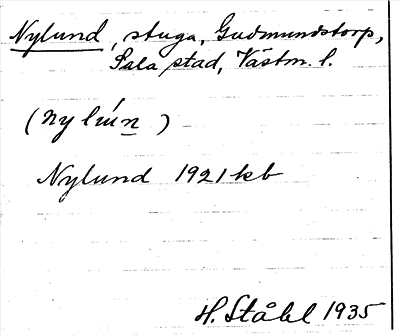 Nylund, stuga, Gudmundstorp,
Sala stad, Västm. l.
(nylún)
Nylund 1921 kb
H. Ståhl 1935